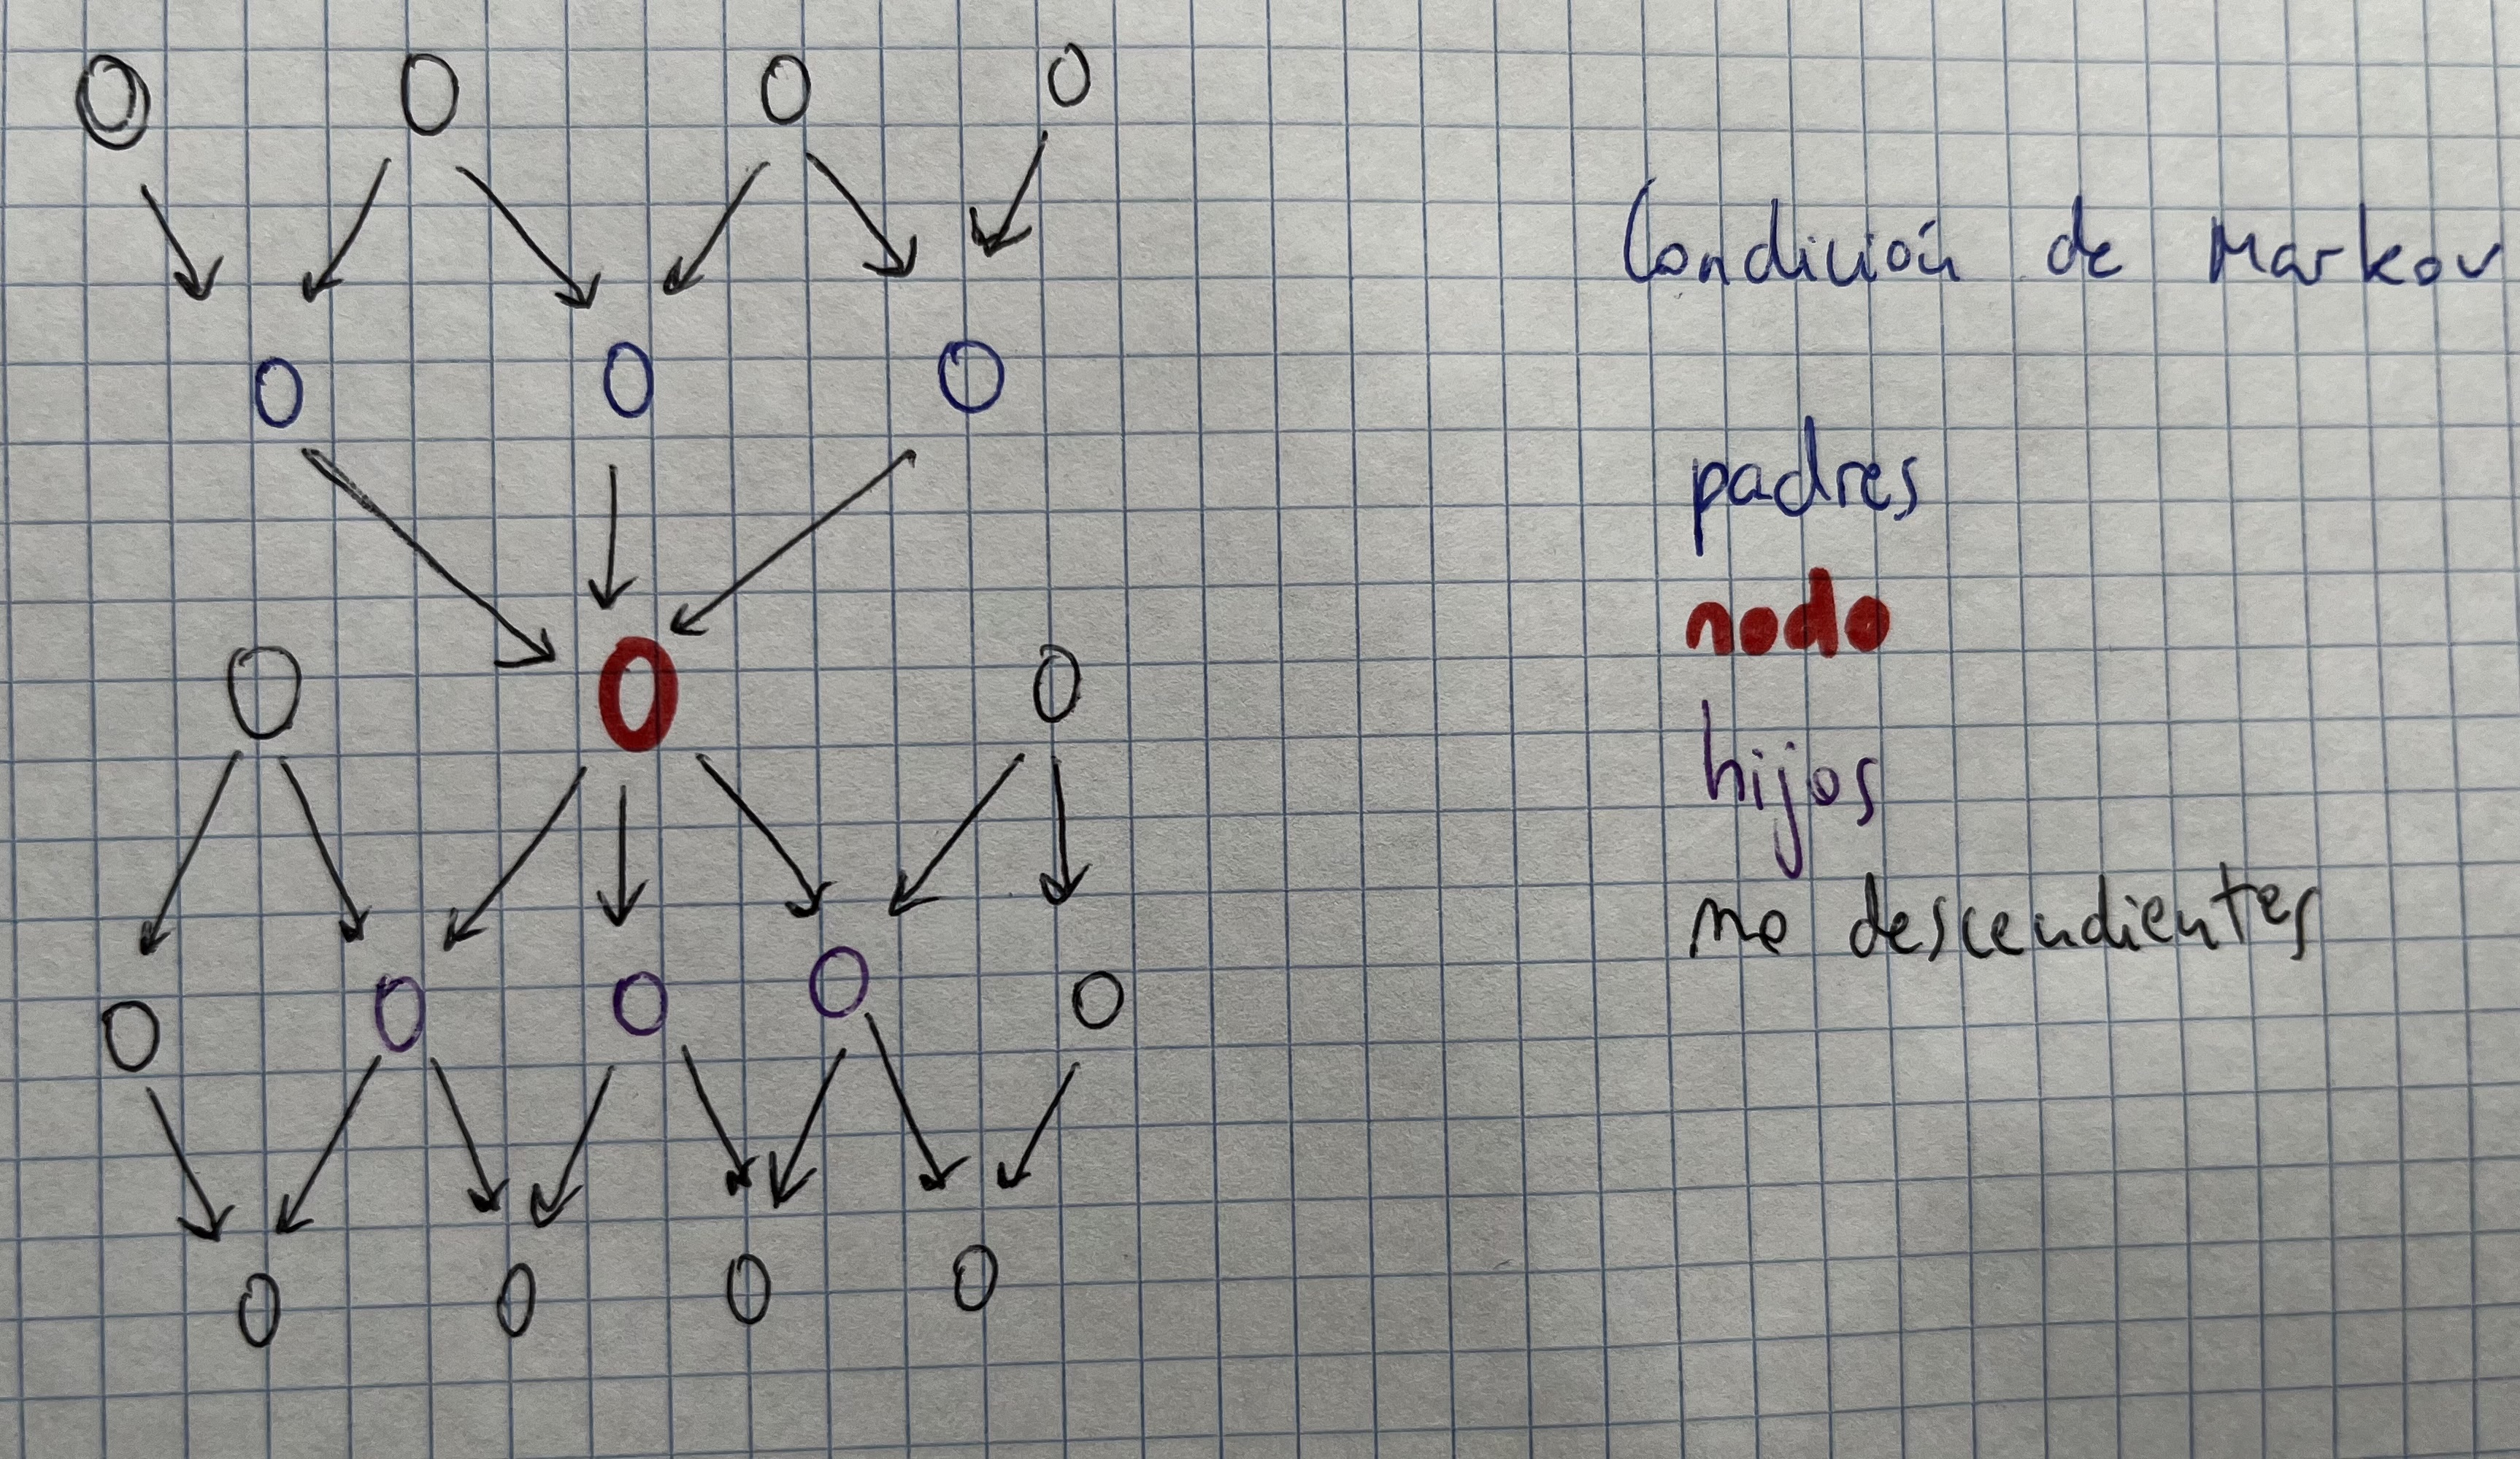 Condición de Markov
padres
nodo
hijos
no descendientes